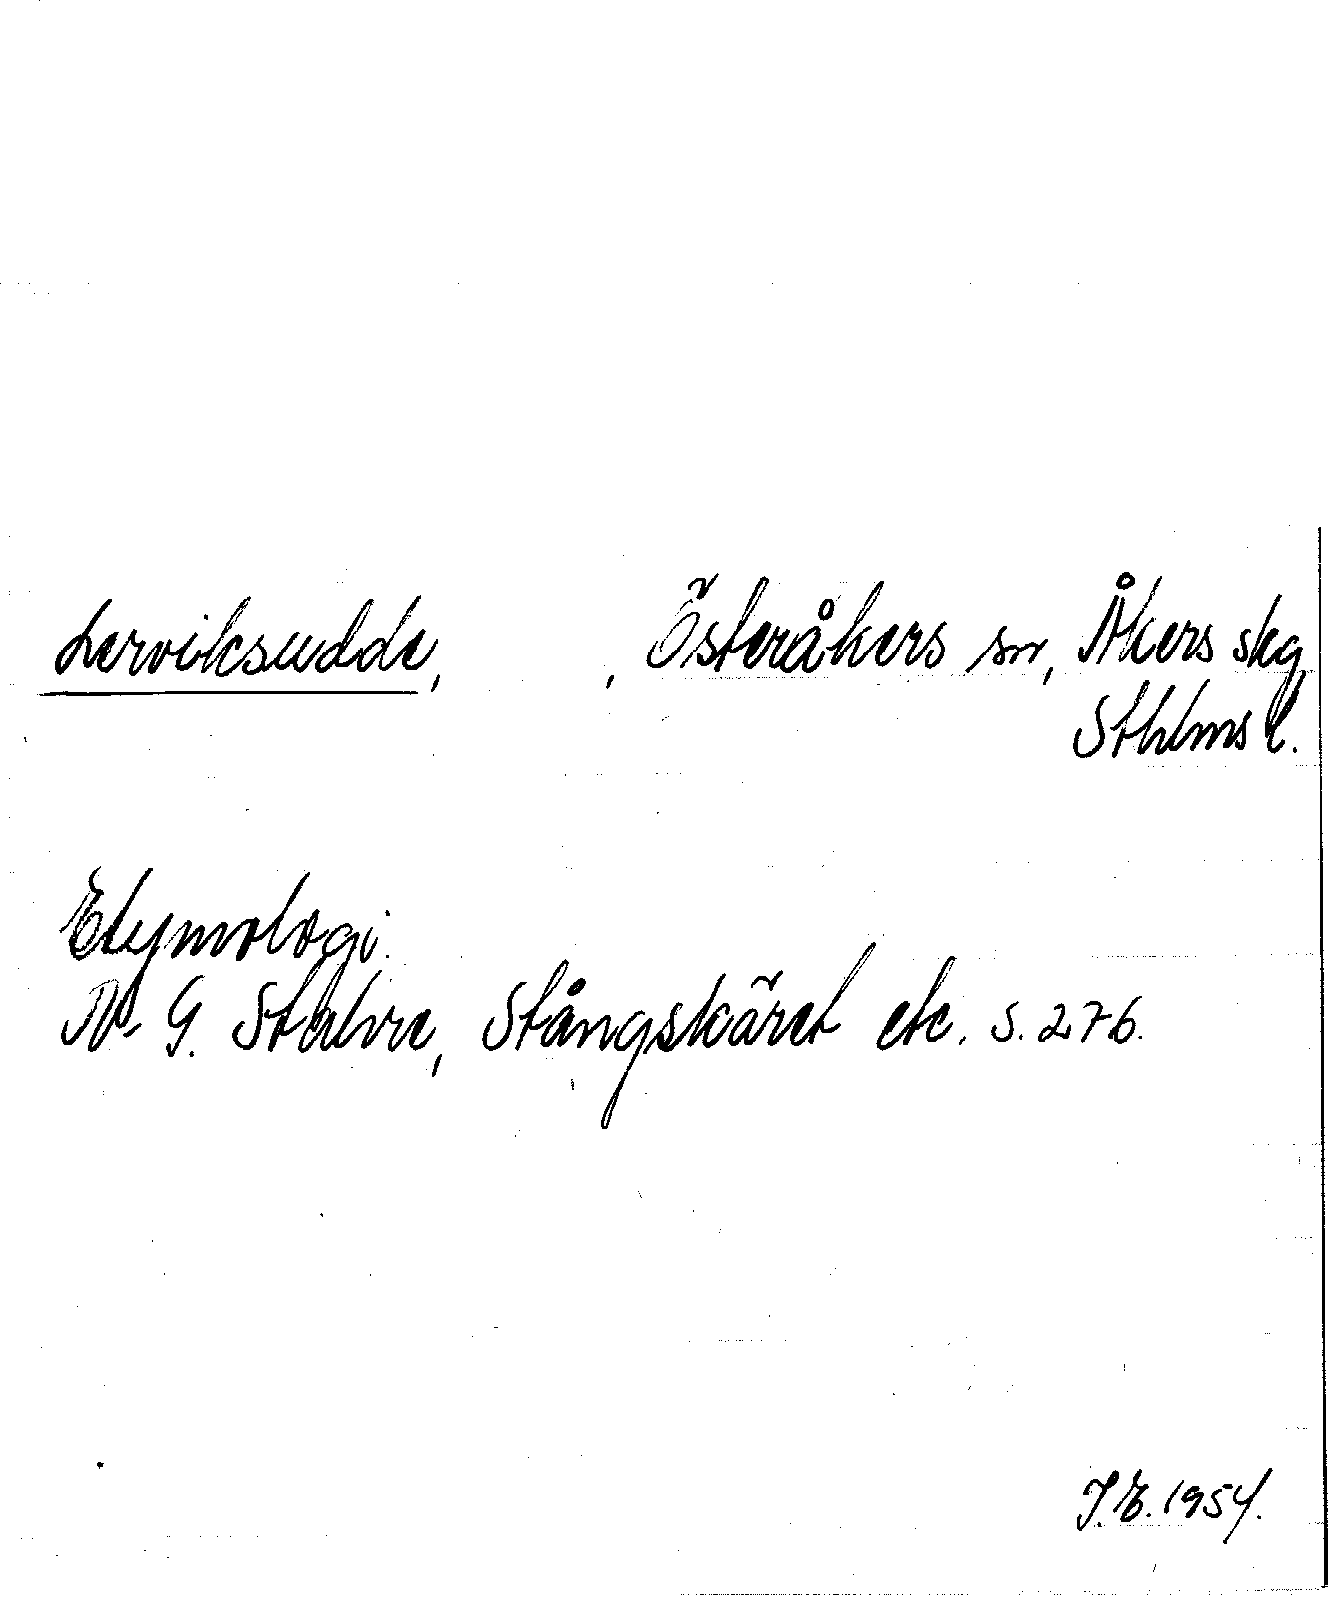 Lerviksudde, , Österåkers sn, Åkers skg
Sthlms l.
Etymologi.
N.-G. Stahre, Stångskäret etc. s. 276.
J.E. 1954.